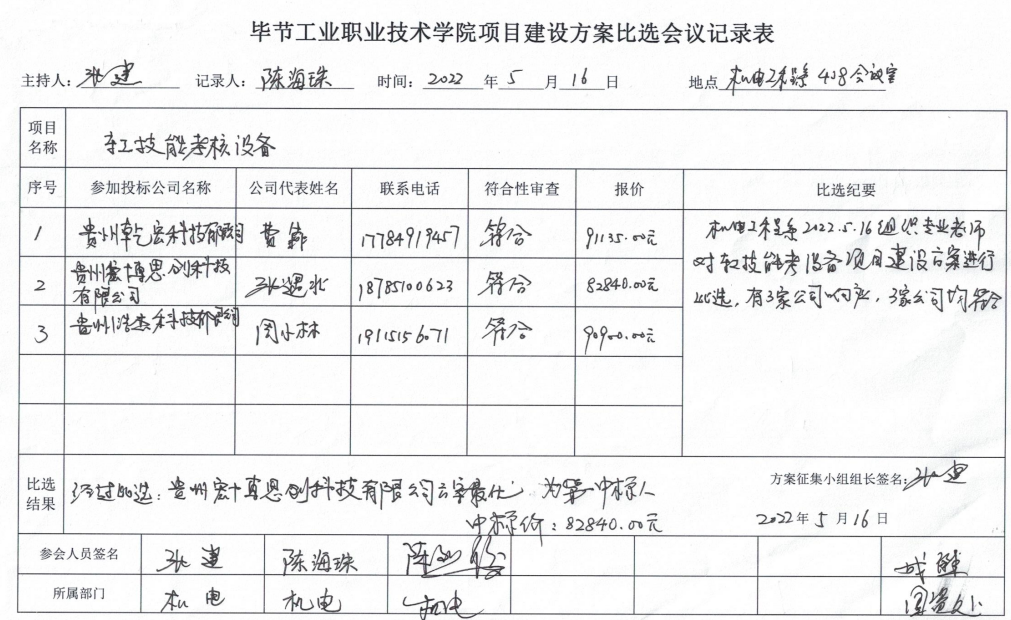 毕节工业职业技术学院项目建设方案比选会议记录表
主持人: 张建 记录人: 陈海珠 时间: 2022 年 5 月 16 日 地点 机电工程系 408会议室
项目名称 车工技能考核设备
序号 参加投标公司名称 公司代表姓名 联系电话 符合性审查 报价 比选纪要
1 贵州乾宏科技有限公司 费 17784919457 符合 91135.00元
2 贵州宏博思创科技有限公司 张遇北 18785100623 符合 82840.00元
3 贵州浩杰科技有限公司 周小林 19115156071 符合 90900.00元
机电工程系2022.5.16组织专业老师
对车技能考设备项目建设方案进行
比选,有3家公司响应,3家公司均符合
比选结果 经过比选:贵州宏博思创科技有限公司方案最优,为第一中标人
中标价:82840.00元
方案征集小组组长签名: 张建
2022年 5 月 16 日
参会人员签名 张建 陈海珠 陈
所属部门 机电 机电 机电 国资处